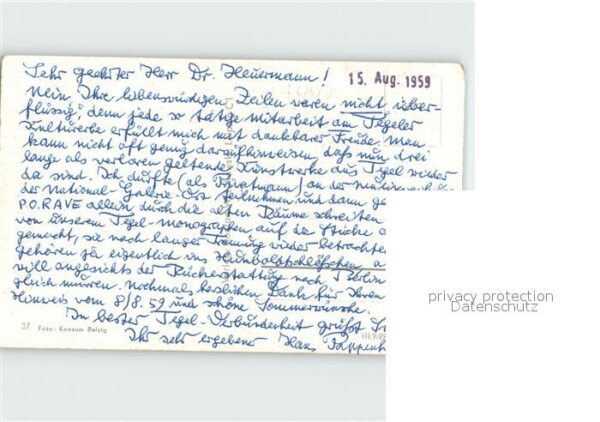 Sehr geehrter Herr Dr. Heuermann!
15. Aug. 1959
Nein Ihre liebenswürdigen Zeilen waren nicht über-
flüssig; denn jede so tätige Mitarbeit am Tegeler
Kulturerbe erfüllt mich mit dankbarer Freude. Man
kann nicht oft genug daraufhinweisen, daß nun drei
lange als verloren geltende Kunstwerke aus Tegel wieder
da sind. Ich durfte (als Privatmann) an der
der National-Galerie-Ost teilnehmen und dann
P.O. RAVE allein durch die alten Räume schreiten
von unserem Tegel-monographen auf die Stücke
gemacht, sie nach langer Trennung wieder betrachten
gehören ja eigentlich ins Humboldtschlößchen
will angesichts der Rückerstattung nach Berlin
gleich nochmals herzlichen Dank für Ihren
Hinweis vom 8/8.59 und schöne Sommerwünsche.
In bester Tegel-Verbundenheit grüßt
Ihr sehr ergebener Hans
37 Foto: Konsum Belzig
privacy protection
Datenschutz